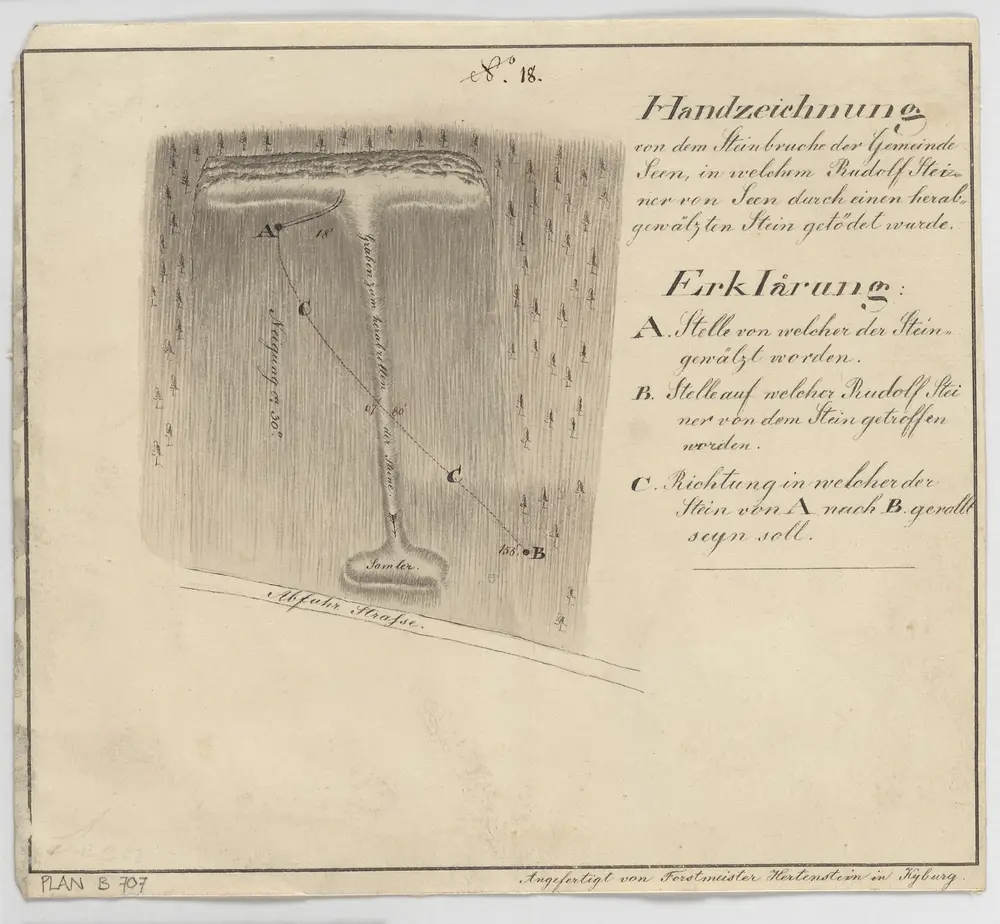 No. 18.
Handzeichnung
von dem Steinbruche der Gemeinde
Seen, in welchem Rudolf Stei=
ner von Seen durch einen herab=
gewälzten Stein getödet wurde.
Erklärung:
A. Stelle von welcher der Stein=
gewälzt worden.
B. Stelle auf welcher Rudolf Stei
ner von dem Stein getroffen
worden.
C. Richtung in welcher der
Stein von A nach B. gerollt
seyn soll.
A
18'
C
Graben zum herabrollen der Steine.
Neigung ca. 30°.
67
86'
C
155.
B
Samler.
Abfuhr Strasse.
Angefertigt von Forstmeister Hertenstein in Kyburg.
PLAN B 707